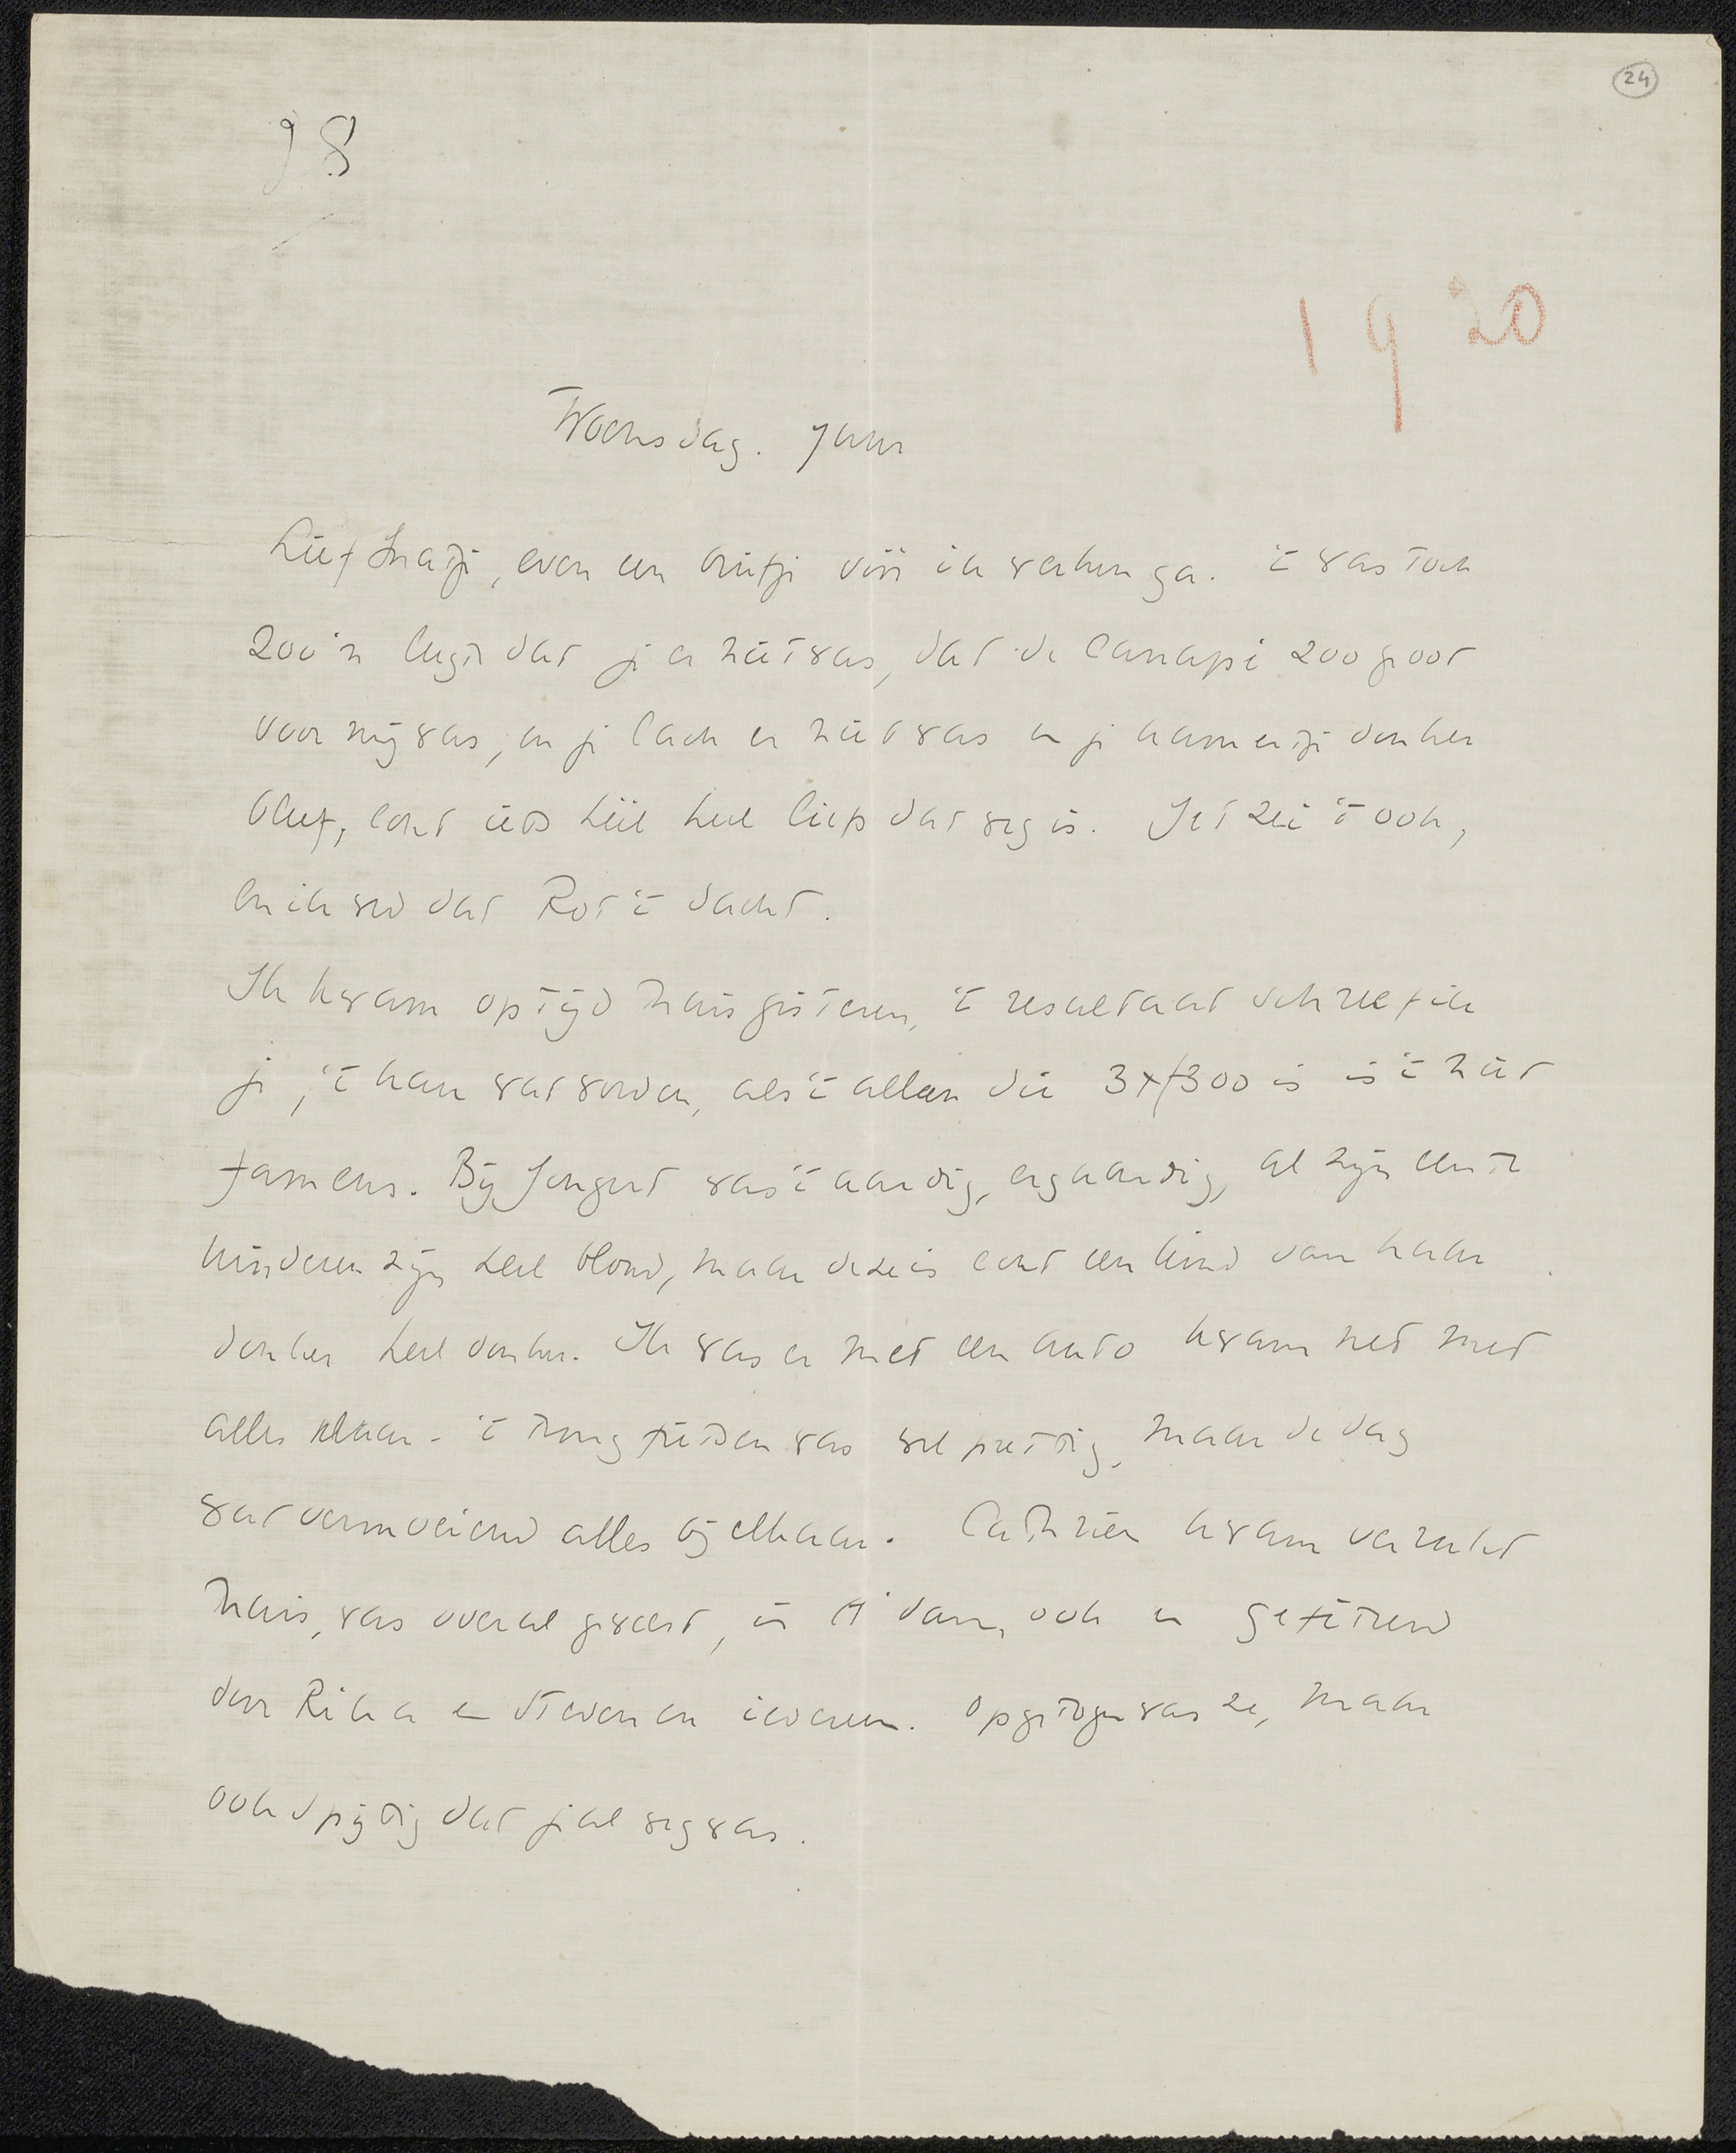 24
98
1920
Woensdag. 9 uur
Lief Snatje, even een briefje vóór ik werken ga. 't was toch
zoo'n leegte dat je er niet was, dat de canapé zoo groot
voor mij was, en je lach er niet was en je kamertje donker
bleef, echt iets héél heel liefs dat weg is. Jet zei 't ook,
en ik wed dat Rot 't dacht.
Ik kwam op tijd thuis gisteren, 't resultaat schreef ik
je, 't kan wat worden, als 't alleen die 3 x f300 is is 't niet
fameus. Bij Jongert was 't aardig, erg aardig, al zijn eerste
kinderen zijn heel blond, maar deze is echt een kind van haar
donker heel donker. Ik was er met een auto kwam net met
alles klaar - 't terug fietsen was wel prettig, maar de dag
wat vermoeiend alles bij elkaar. Cathrien kwam verrukt
thuis, was overal geweest, in A'dam, ook en gefêteerd
door Rika en Steven en iedereen. Opgetogen was ze, maar
ook spijtig dat je al weg was.